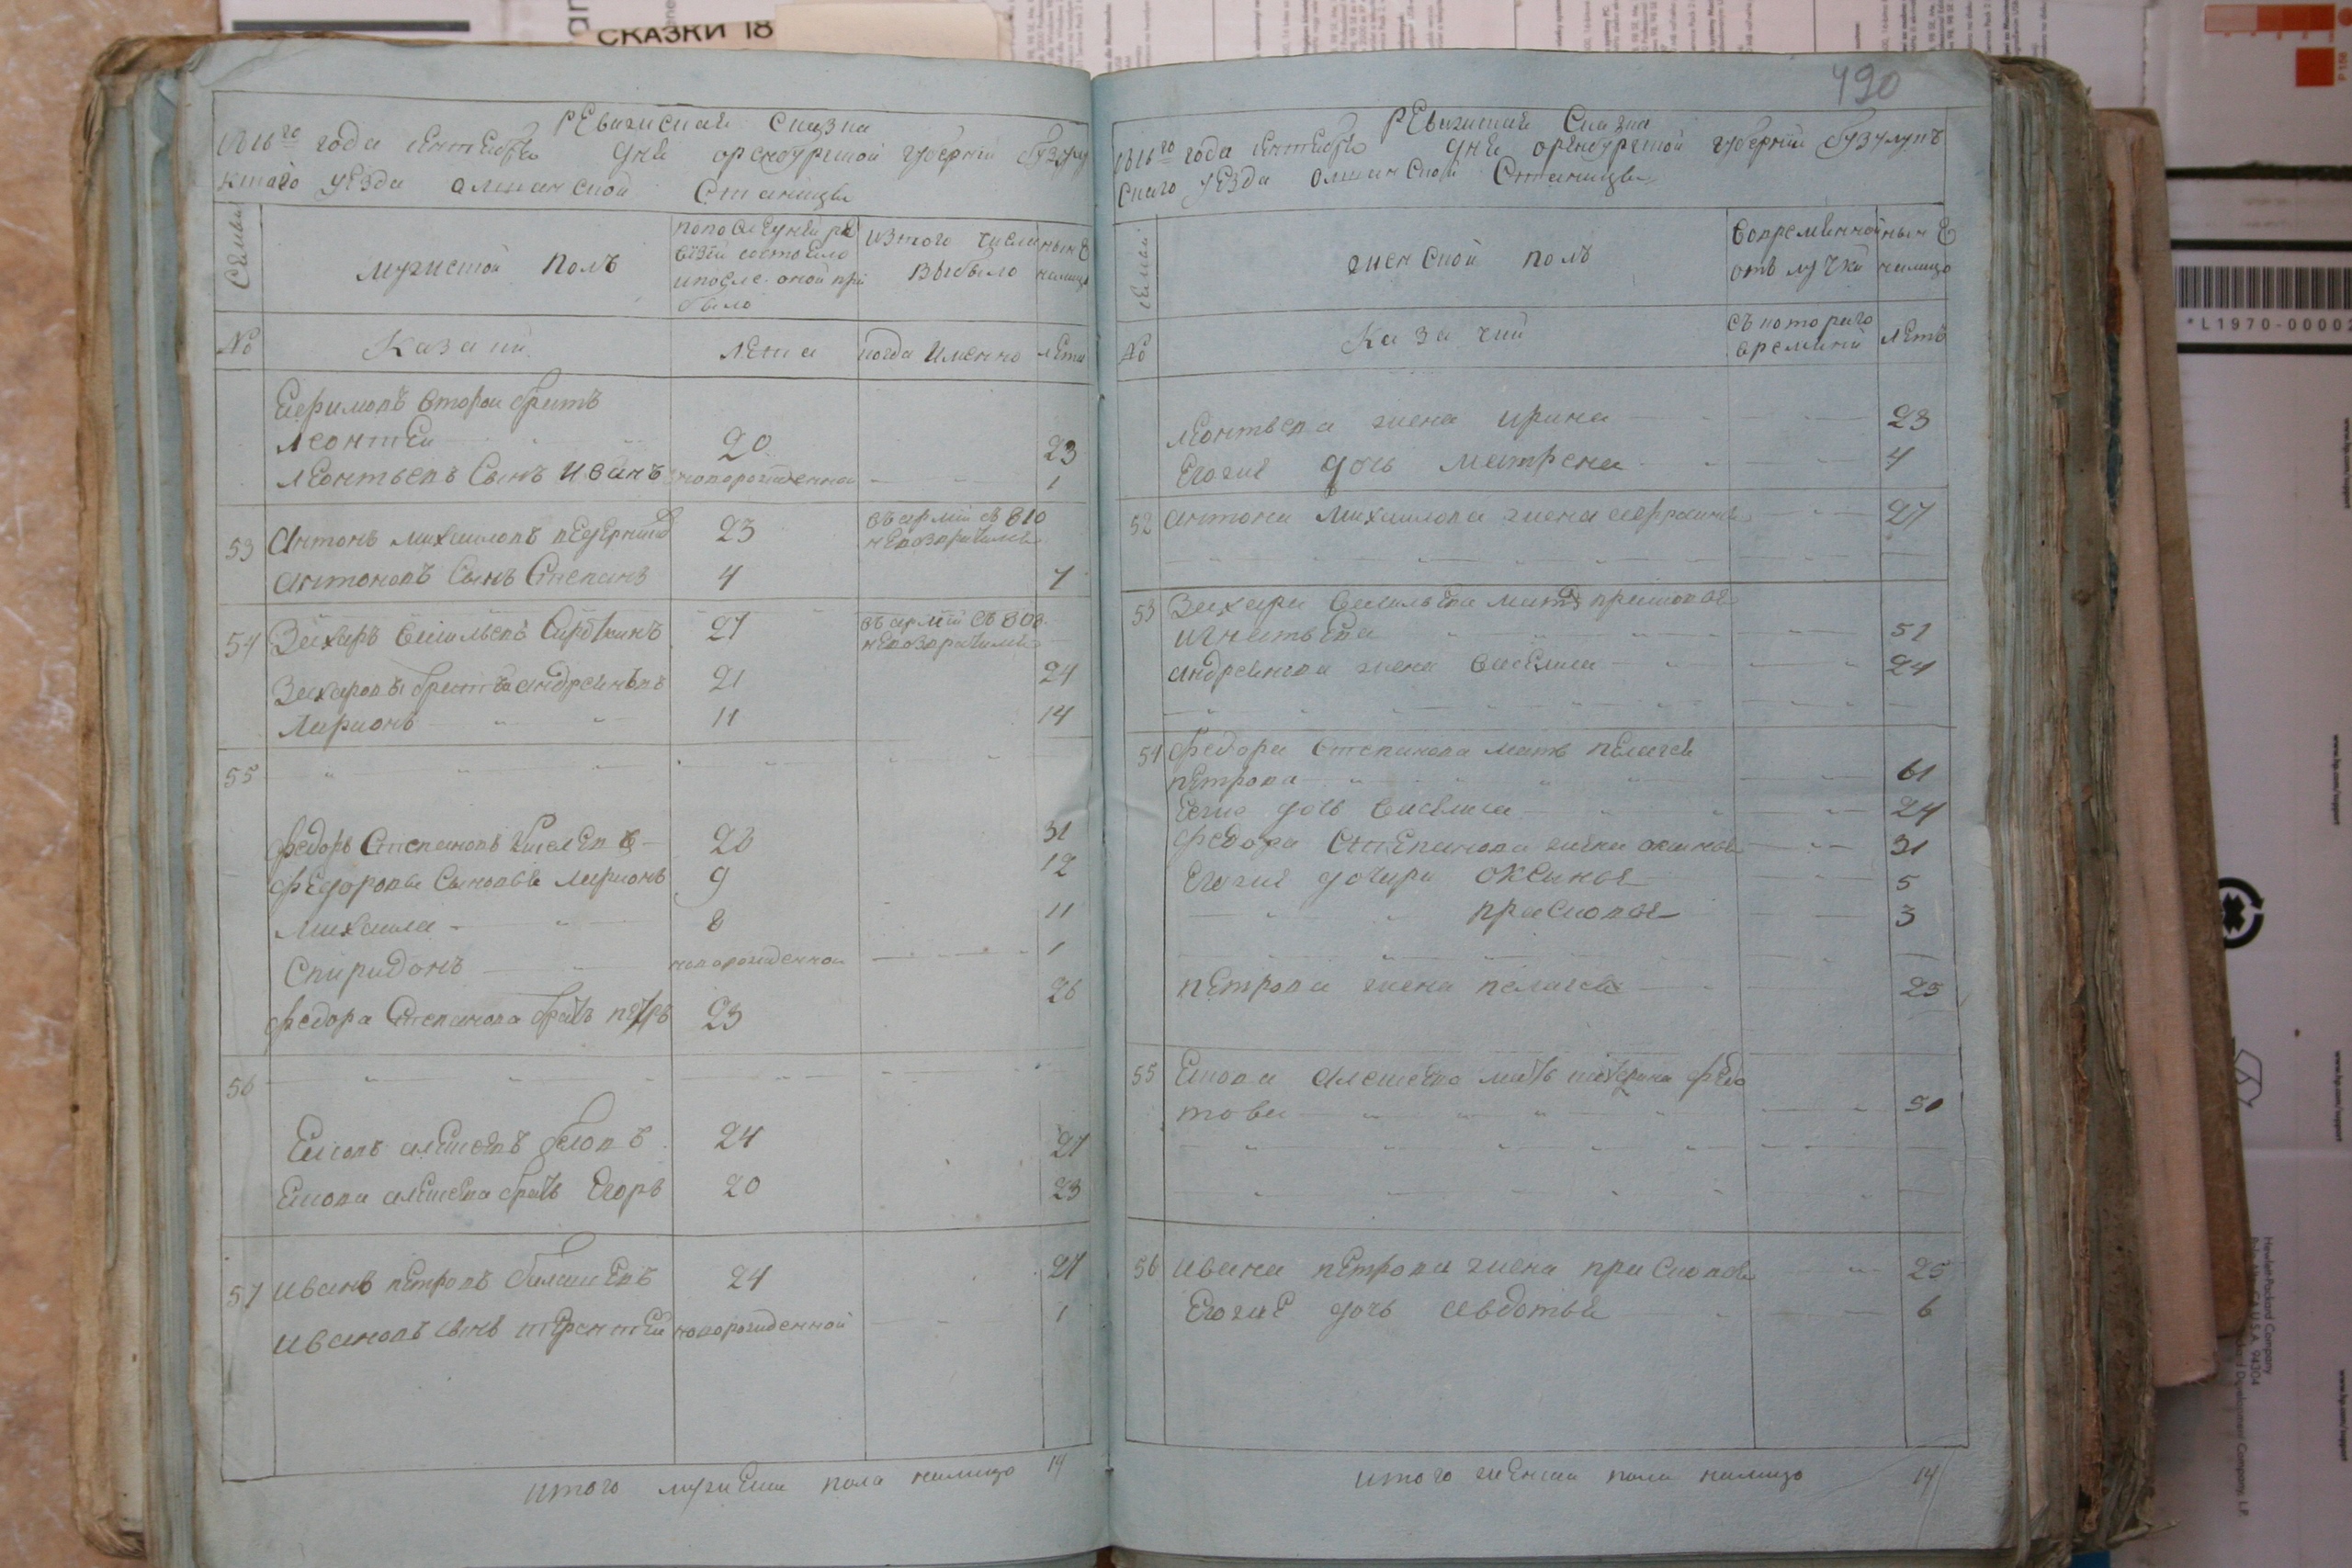 СКАЗКИ 18
490
РЕвизская Сказка
1816го года сентебрѣ дня оренбургской губернии бузулу
кскаго уѣзда олшанской Станицы
СЕмьи
мужеской Полъ
по последней ре
визии состояло
и после оной при
было
из того числа
выбыло
нынѣ
налицо
№
Казаки
Лета
когда Именно
лета
Ефимовъ второй братъ
леонтей 20 23
леонтьевъ Сынъ Иванъ новорожденной 1
53 Антонъ михаиловъ 23 въ армии съ 810
невозвратился
антоновъ Сынъ Степанъ 4 7
54 Захаръ васильевъ Сироткинъ 27 въ армии съ 808
невозвратился
Захаровы братья андреянъ 21 24
Ларионъ 11 14
55
федоръ Степановъ Киселевъ 28 31
федоровы Сыновья ларионъ 9 12
михаила 8 11
Спиридонъ новорожденной 1
федора Степанова братъ петръ 23 26
56
Еановъ алексевъ беловъ 24 27
алексева братъ Егоръ 20 23
57 иванъ петровъ балашевъ 24 27
ивановъ сынъ терентей новорожденной 1
итого мужеска пола налицо 14
РЕвизская Сказка
1816го года сентебрѣ дня оренбургской губернии бузулукъ
скаго уѣзда олшанской Станицы
семьи
женской полъ
во временной
отлучки
нынѣ
налицо
№
Казачий
съ котораго
времени
лѣтъ
леонтьева жена ирина 23
Егожа дочь матрена 4
52 антона михаилова жена афросинья 27
53 Захара васильева мать прасковья
игнатьева 51
андреянова жена василиса 24
54 федора степанова мать пелагея
петрова 61
Еежа дочь василиса 24
федора Степанова жена аксинья 31
Егожа дочери оксинья 5
прасковья 3
петрова жена пелагея 25
55 алексева мать катерина федо
това 50
56 ивана петрова жена прасковья 25
Егоже дочь авдотья 6
итого женска пола налицо 14